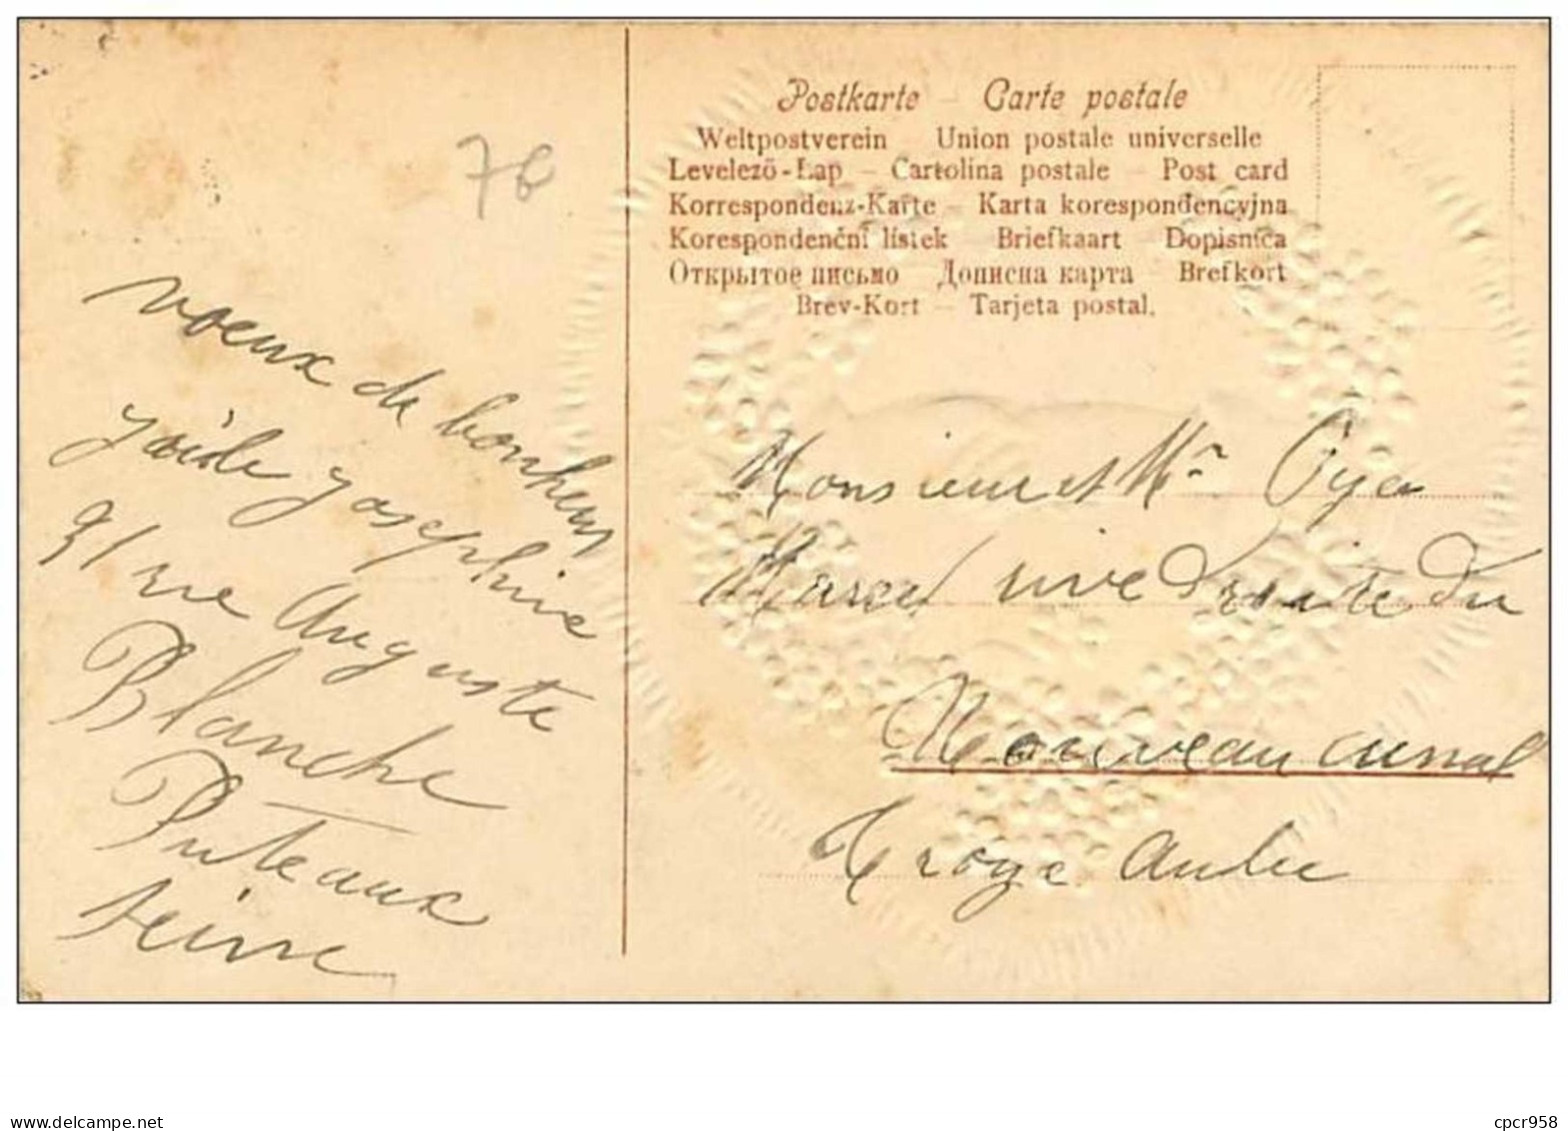 76
voeux de bonheur
Josephine
31 rue Auguste
Blanche
Puteaux
seine
Postkarte – Carte postale
Weltpostverein Union postale universelle
Levelező-Lap – Cartolina postale – Post card
Korrespondenz-Karte – Karta korespondencyjna
Korespondenční lístek – Briefkaart – Dopisnica
Открытое письмо – Дописна карта – Brefkort
Brev-Kort – Tarjeta postal.
Monsieur et Mr
Marcel rive Droite Du
Nouveau canal
Troye Aube
www.delcampe.net
cpcr958